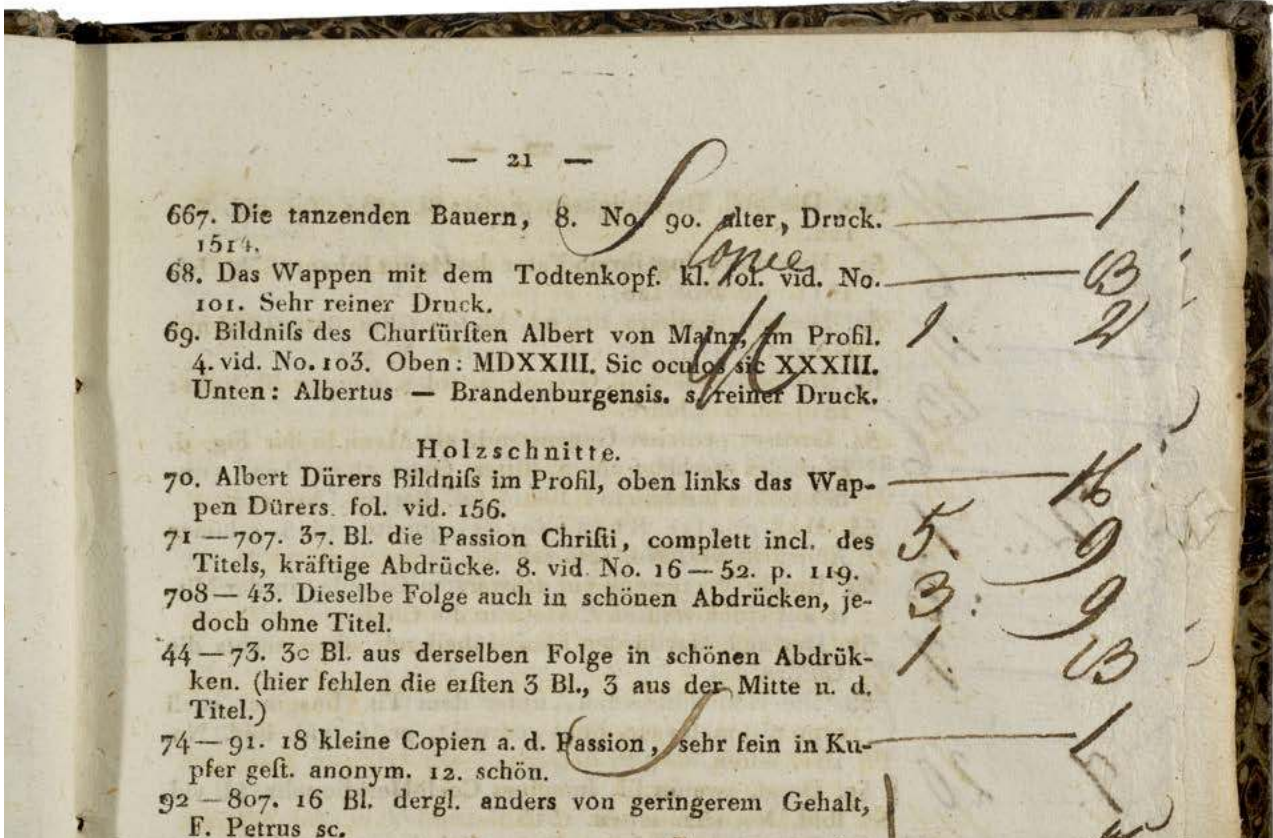 — 21 —
667. Die tanzenden Bauern, 8. No 90. alter, Druck. — 1
1514.
Copie
68. Das Wappen mit dem Todtenkopf. kl. fol. vid. No. —
101. Sehr reiner Druck.
69. Bildniſs des Churfürſten Albert von Mainz, im Profil. 1. 2
4. vid. No. 103. Oben: MDXXIII. Sic oculos sic XXXIII.
Unten: Albertus — Brandenburgensis. s. reiner Druck.
Holzschnitte.
70. Albert Dürers Bildniſs im Profil, oben links das Wap- — 16
pen Dürers. fol. vid. 156.
71 — 707. 37. Bl. die Passion Chriſti, complett incl. des 5. 9
Titels, kräftige Abdrücke. 8. vid. No. 16 — 52. p. 119.
708 — 43. Dieselbe Folge auch in schönen Abdrücken, je- 3: 9
doch ohne Titel.
44 — 73. 30 Bl. aus derselben Folge in schönen Abdrük- 1.
ken. (hier fehlen die erſten 3 Bl., 3 aus der Mitte u. d.
Titel.)
74 — 91. 18 kleine Copien a. d. Passion, sehr fein in Ku- — 1
pfer geſt. anonym. 12. schön.
92 — 807. 16 Bl. dergl. anders von geringerem Gehalt,
F. Petrus sc.